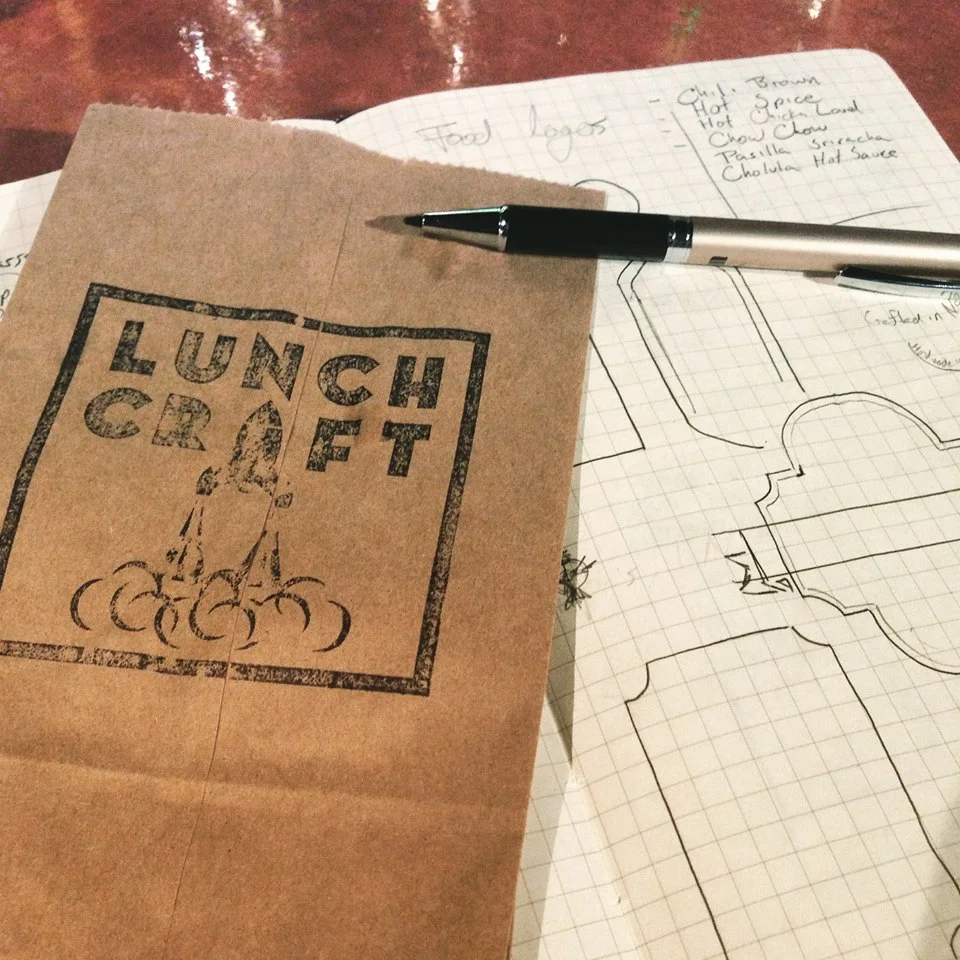 LUNCH
CRAFT
Food Logos
Chili Brown
Hot Spice
Hot Chicken Land
Chow Chow
Pasilla sriracha
Cholula Hot Sauce
Crafted in